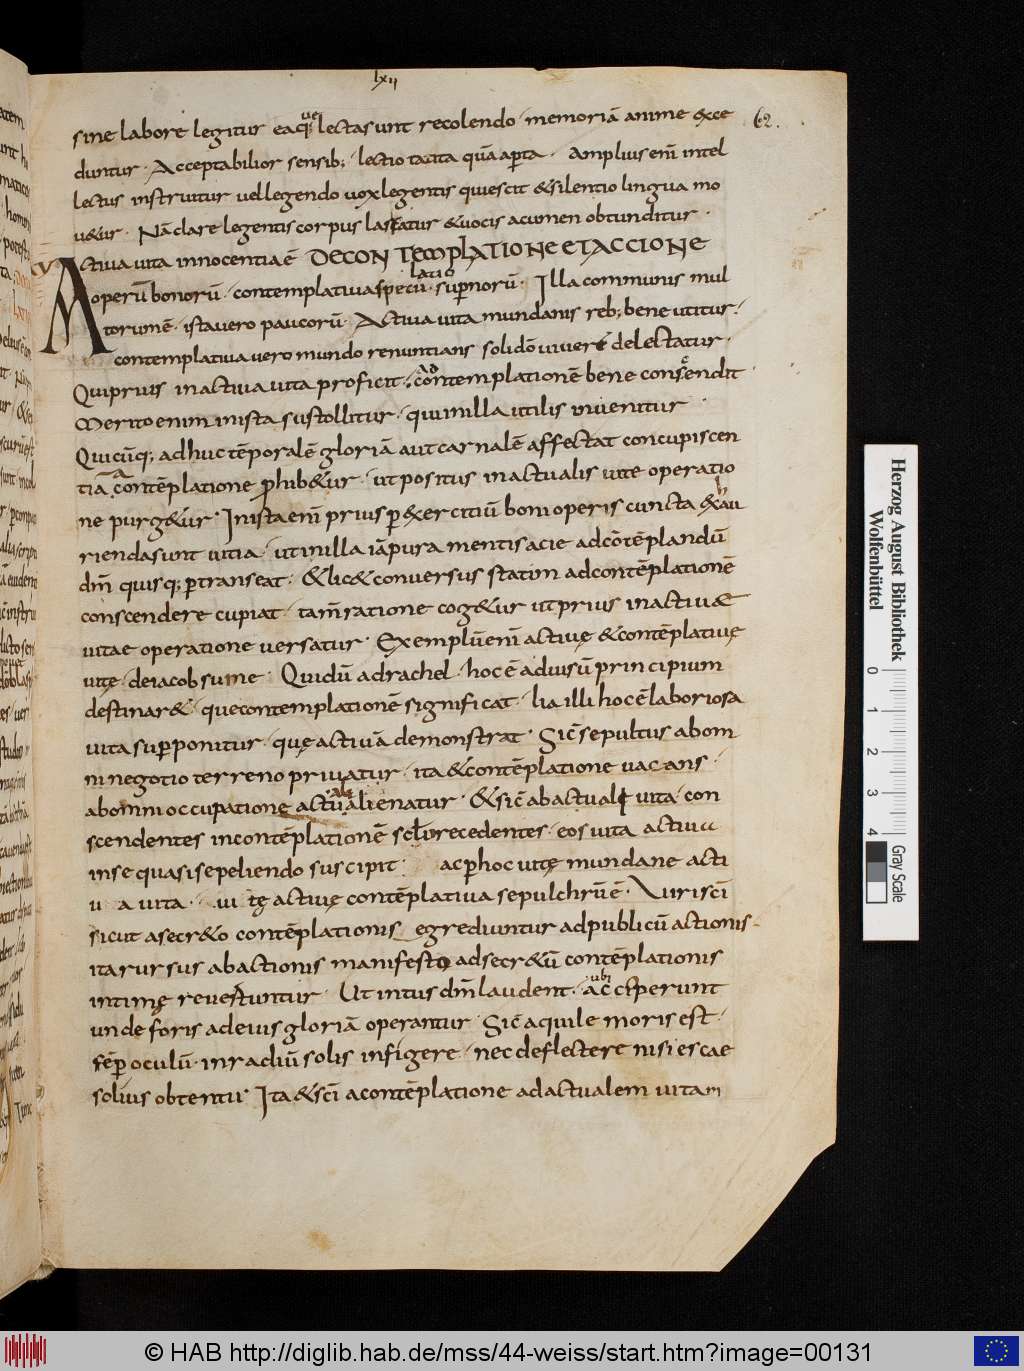 lxii
62.
sine labore legitur eaq̅ue lectasunt recolendo · memoriā anime exce
duntur · Acceptabilior sensib; · lectio tacita quā aperta · Amplius enī intel
lectus instruitur uel legendo uox legentis quiescit & silentio lingua mo
u&ur · Nā clare legentis corpus lassatur & uocis acumen obtunditur ·
Actiua uita innocentia ē DE CONTEMPLATIONE ET ACCIONE
operū bonorū · contemplatiua specu̅latio · suꝑnorū · Illa communis mul
torum ē · ista uero paucorū · Actiua uita mundanis reb; bene utitur ·
contemplatiua uero mundo renuntians soli dō uiuere delectatur ·
Qui prius in actiua uita proficit · ad contemplationē bene conscendit ·
Merito enim in ista sustollitur · qui in illa utilis inuenitur ·
Quicūq; adhuc tēporalē gloriā aut carnalē affectat concupiscen
tiā a contēplatione ꝓhib&ur · ut positus in actualis uite operatio
ne purg&ur · In ista enī prius ꝑ exercitiū boni operis cuncta exau
rienda sunt uitia · ut in illa iā pura mentis acie ad cōtēplandū
dm̄ quisq; ꝑtranseat · & lic& conuersus statim ad contēplationē
conscendere cupiat · tam̄ ratione cog&ur ut prius in actiue
uitae operatione uersatur · Exemplū enī actiuę & contēplatiuę
uitę · de iacob sume · Qui dū ad rachel · hoc ē ad uisū principium
destinar& · que contemplationē significat · lia illi hoc ē laboriosa
uita suꝑponitur · quę actiuā demonstrat · Sic̄ sepultus ab om
ni negotio terreno priuatur · ita & contēplatione uacans ·
ab omni occupatione actuali alienatur · & sic̄ ab actuali uita · con
scendentes in contēplationē sc̄lū recedentes · eos uita actiua
in se quasi sepeliendo suscipit · ac ꝑhoc uitę mundane acti
u a uita · ui tę actiuę contēplatiua sepulchrū ē · Uiri sc̄i
sicut a secr&o contēplationis egrediuntur ad publicū actionis ·
ita rursus ab actionis manifesto ad secr&ū contēplationis
intimę reuertuntur · Ut intus dm̄ laudent · ubi acceperunt
unde foris ad eius gloriā operantur · Sic̄ aquile moris est ·
sēꝑ oculū · in radiū solis infigere · nec deflectere nisi escae
solius obtentu · Ita & sc̄i a contēplatione ad actualem uitam
Herzog August Bibliothek
Wolfenbüttel
0 1 2 3 4
Gray Scale
© HAB http://diglib.hab.de/mss/44-weiss/start.htm?image=00131